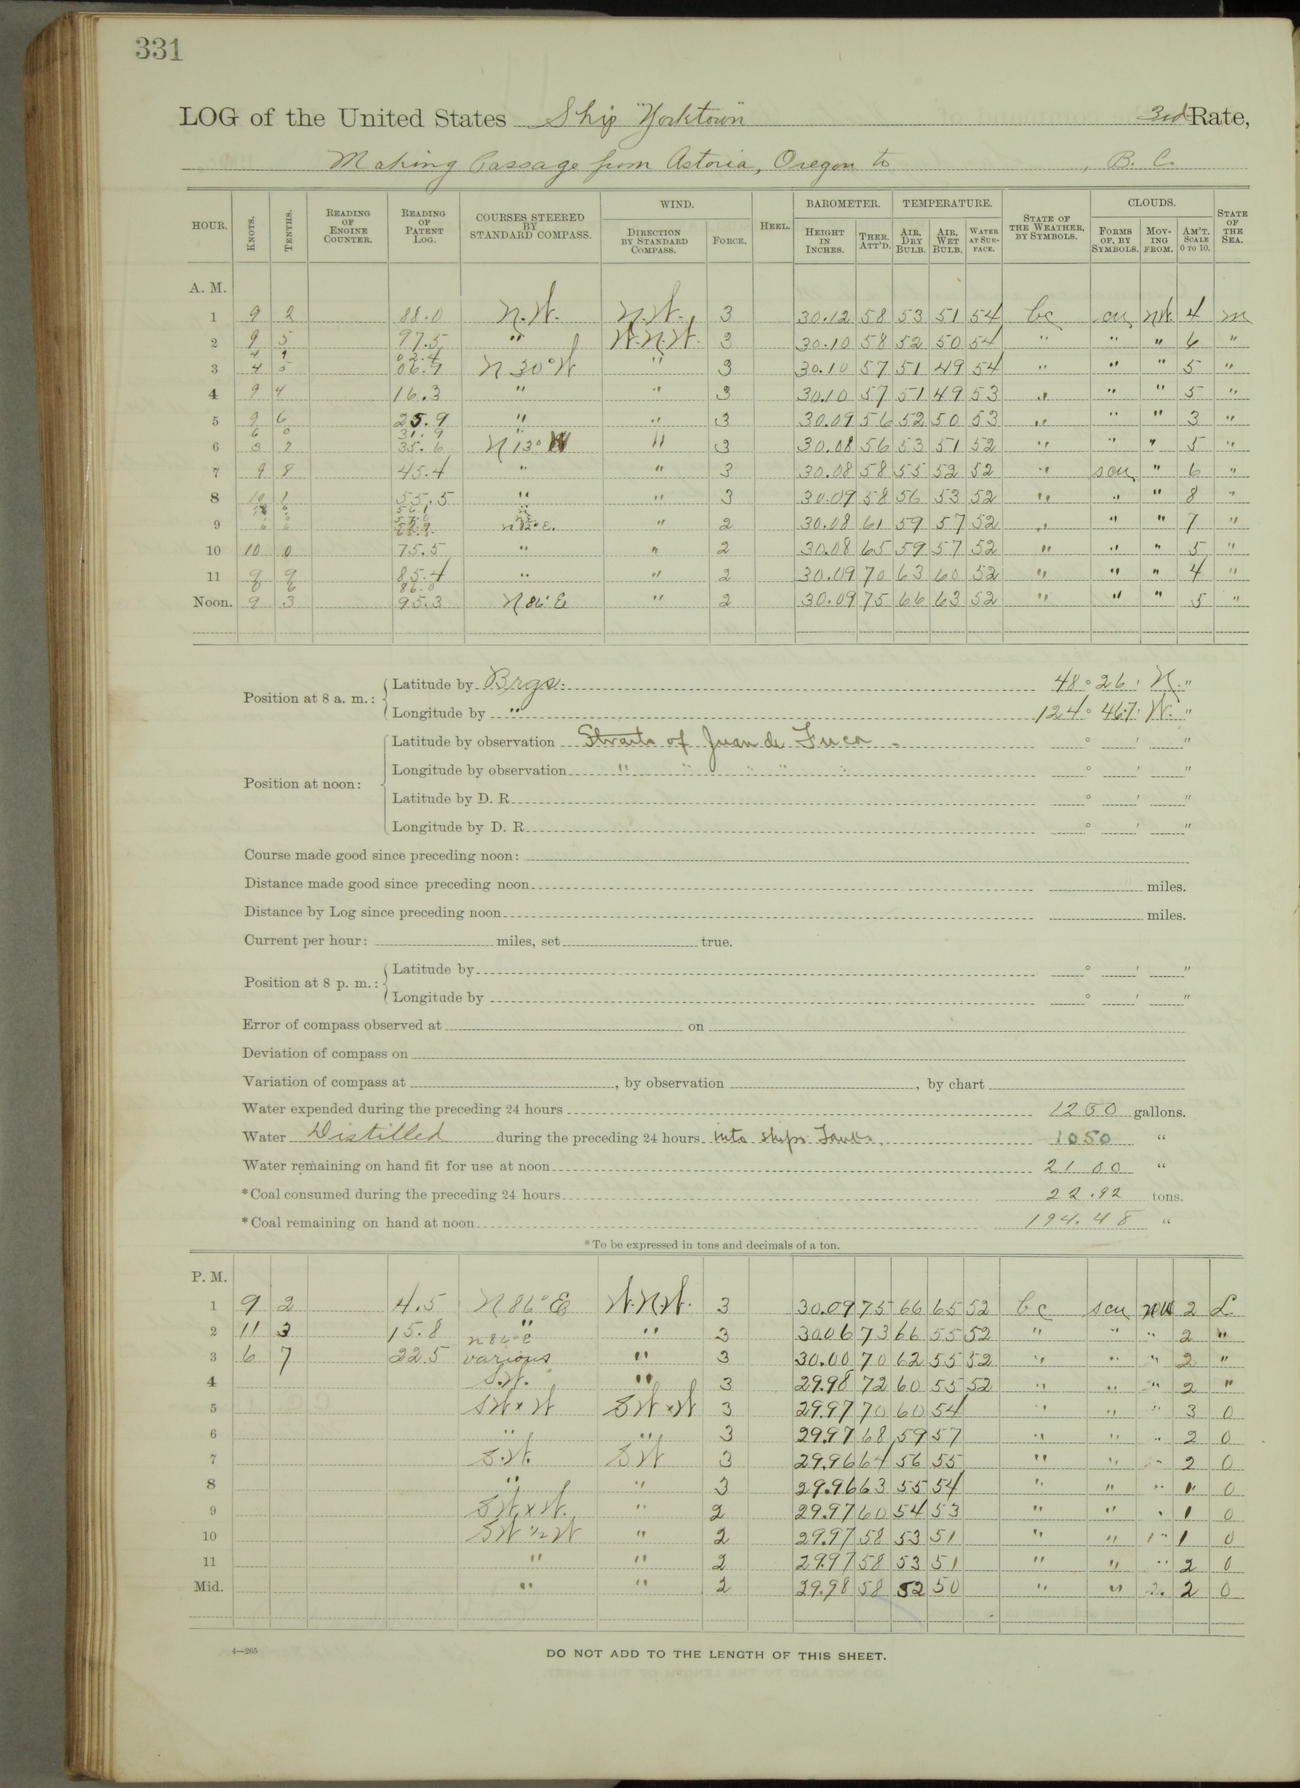 331
LOG of the United States Ship "Yorktown" 3rd Rate,
Making Passage from Astoria, Oregon to , B. C.
HOUR. KNOTS. TENTHS. READING OF ENGINE COUNTER. READING OF PATENT LOG. COURSES STEERED BY STANDARD COMPASS. WIND. DIRECTION BY STANDARD COMPASS. FORCE. HEEL. BAROMETER. HEIGHT IN INCHES. THER. ATT'D. TEMPERATURE. AIR, DRY BULB. AIR, WET BULB. WATER AT SURFACE. STATE OF THE WEATHER, BY SYMBOLS. CLOUDS. FORMS OF, BY SYMBOLS. MOVING FROM. AM'T. SCALE 0 TO 10. STATE OF THE SEA.
A. M.
1 9 2 88.0 N.W. N.W. 3 30.12 58 53 51 54 bc cu NW 4 m
2 9 5 97.5 " W.N.W. 3 30.10 58 52 50 54 " " " 6 "
4 9 02.4
3 4 5 06.9 N 30° W " 3 30.10 57 51 49 54 " " " 5 "
4 9 4 16.3 " " 3 30.10 57 51 49 53 " " " 5 "
5 9 6 25.9 " " 3 30.09 56 52 50 53 " " " 3 "
6 0 31.9
6 3 7 35.6 N 13° W " 3 30.08 56 53 51 52 " " " 5 "
7 9 8 45.4 " " 3 30.08 58 55 52 52 " scu " 6 "
8 10 1 55.5 " " 3 30.09 58 56 53 52 " " " 8 "
9 " 2 30.08 61 59 57 52 " " " 7 "
10 10 0 75.5 " " 2 30.08 65 59 57 52 " " " 5 "
11 9 9 85.4 " " 2 30.09 70 63 60 52 " " " 4 "
0 6 86.0
Noon. 9 3 95.3 N 86° E " 2 30.09 75 66 63 52 " " " 5 "
Position at 8 a. m.: Latitude by Brgs. 48° 26' N. "
Longitude by " 124° 46.7' W. "
Position at noon: Latitude by observation Straits of Juan de Fuca. ° ' "
Longitude by observation " " " " " ° ' "
Latitude by D. R. ° ' "
Longitude by D. R. ° ' "
Course made good since preceding noon:
Distance made good since preceding noon miles.
Distance by Log since preceding noon miles.
Current per hour: miles, set true.
Position at 8 p. m.: Latitude by ° ' "
Longitude by ° ' "
Error of compass observed at on
Deviation of compass on
Variation of compass at , by observation , by chart
Water expended during the preceding 24 hours 1250 gallons.
Water Distilled during the preceding 24 hours into ships Tanks, 1050 "
Water remaining on hand fit for use at noon 2100 "
*Coal consumed during the preceding 24 hours 22.92 tons.
*Coal remaining on hand at noon 194.48 "
*To be expressed in tons and decimals of a ton.
P. M.
1 9 2 4.5 N 86° E W.N.W. 3 30.09 75 66 65 52 bc scu NW 2 L
2 11 3 15.8 " N 86° E " 3 30.06 73 66 55 52 " " " 2 "
3 6 7 22.5 various " 3 30.00 70 62 55 52 " " " 2 "
4 S.W. " 3 29.98 72 60 55 52 " " " 2 "
5 SW x W SW x W 3 29.97 70 60 54 " " " 3 0
6 " " 3 29.97 68 59 57 " " " 2 0
7 S.W. SW 3 29.96 64 56 55 " " " 2 0
8 " " 3 29.96 63 55 54 " " " " 0
9 SW x W. " 2 29.97 60 54 53 " " " 1 0
10 SW ½ W " 2 29.97 58 53 51 " " " 1 0
11 " " 2 29.97 58 53 51 " " " 2 0
Mid. " " 2 29.98 58 52 50 " " " 2 0
4—265
DO NOT ADD TO THE LENGTH OF THIS SHEET.